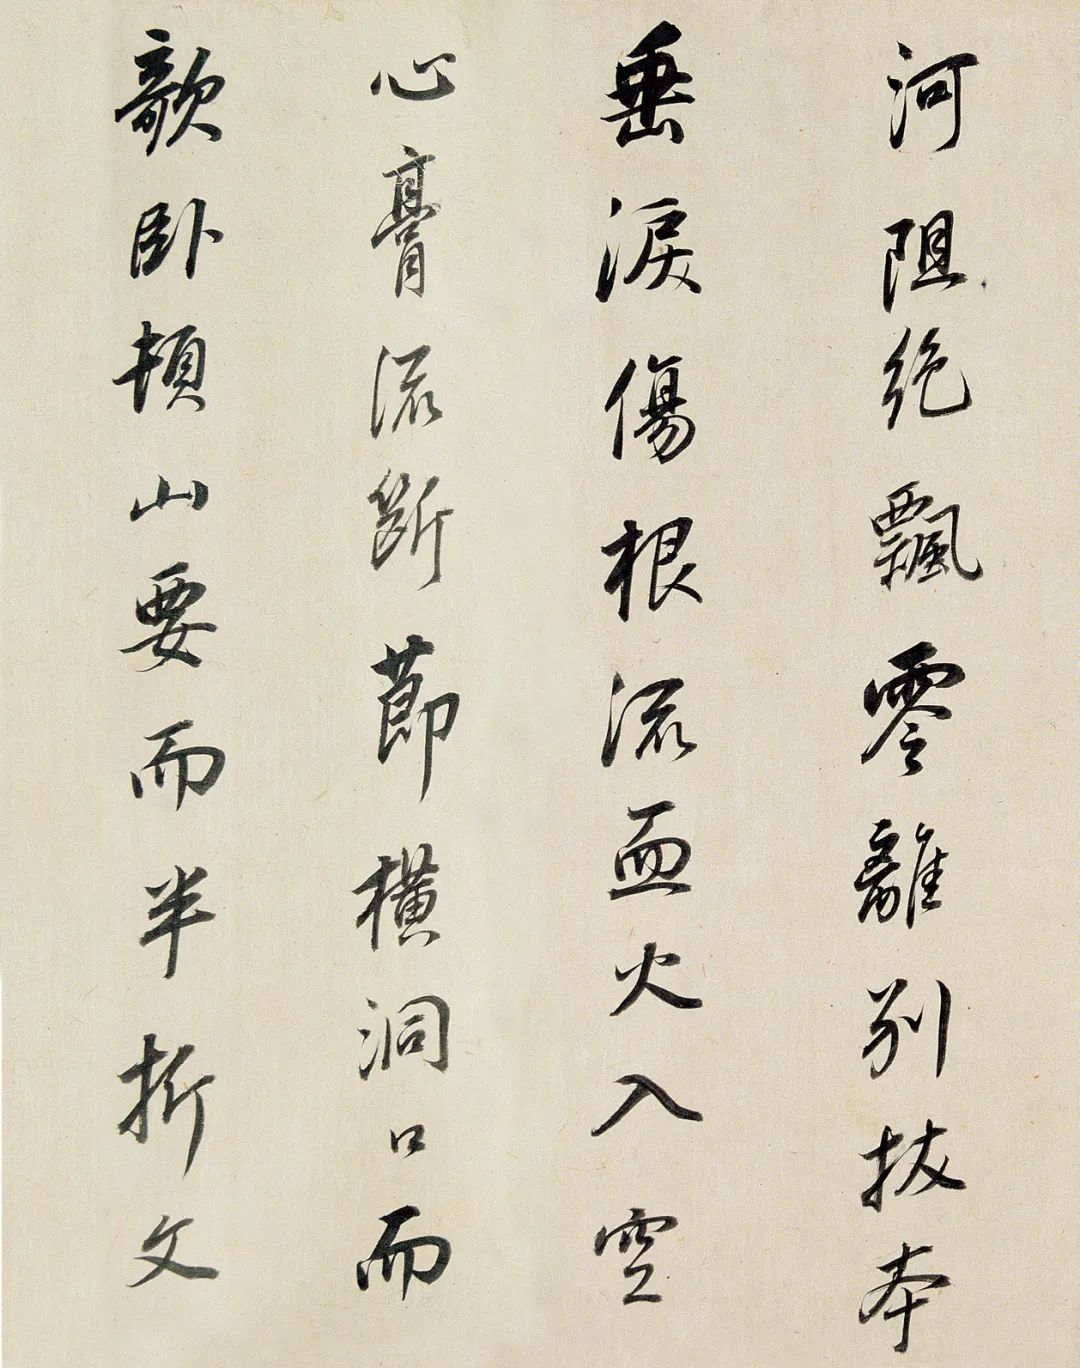 河阻绝飄零離别拔本
垂淚傷根流血火入空
心膏流斷節橫洞口而
欹卧頓山要而半折文